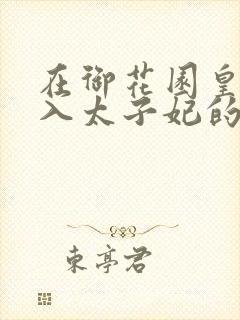 在御花园皇
入太子妃的
东亭君